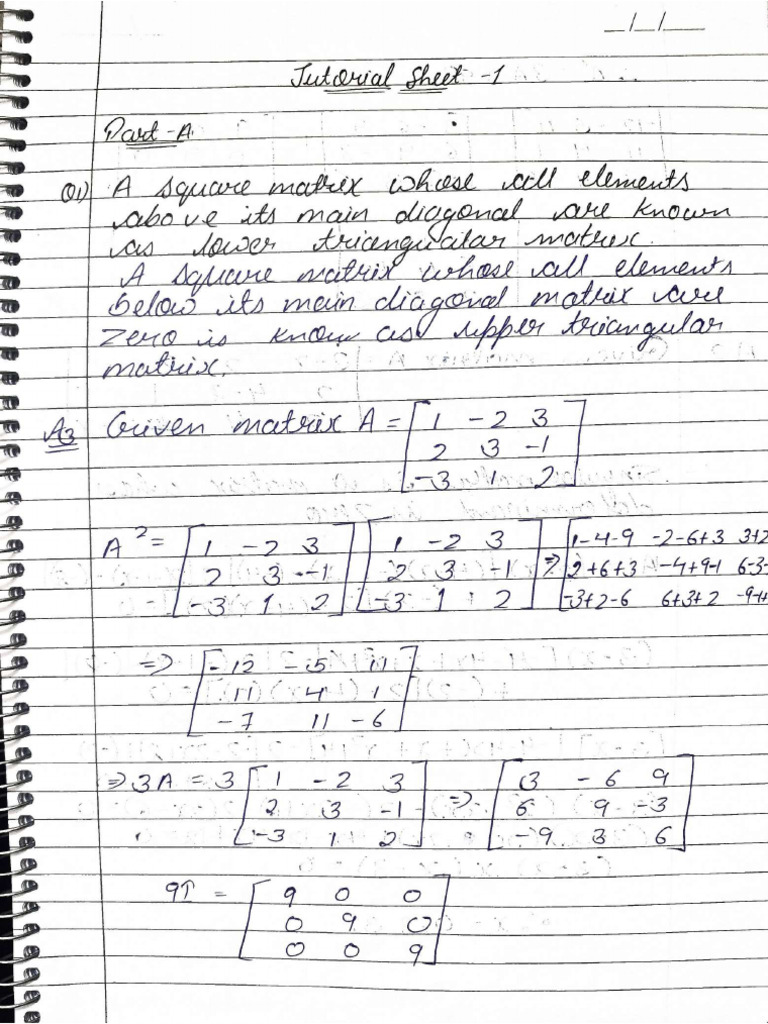 _/_/__
Tutorial Sheet -1
Part-A
Q1) A square matrix whose all elements
above its main diagonal are known
as lower triangular matrix.
A square matrix whose all elements
below its main diagonal matrix are
zero is known as upper triangular
matrix.
A3 Given matrix A = [1 -2 3
2 3 -1
-3 1 2]
A² = [1 -2 3 [1 -2 3 ⇒ [1-4-9 -2-6+3 3+2
2 3 -1 2 3 -1 2+6+3 -4+9-1 6-3-
-3 1 2] -3 1 2] -3+2-6 6+3+2 -9-1+
⇒ [-12 -5 11
11 4 1
-7 11 -6]
⇒ 3A = 3 [1 -2 3 ⇒ [3 -6 9
2 3 -1 6 9 -3
-3 1 2] -9 3 6]
9I = [9 0 0
0 9 0
0 0 9]